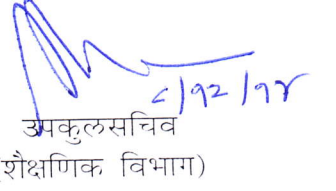 ८/१२/१४
उपकुलसचिव
शैक्षणिक विभाग)